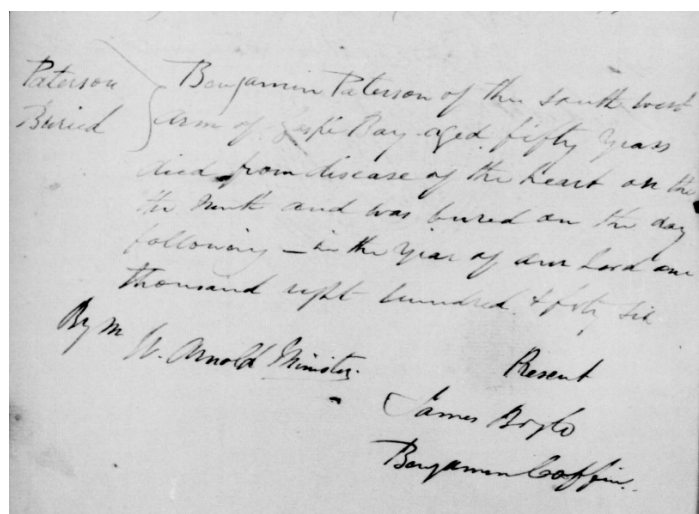 Paterson Buried
Benjamin Paterson of the south west
arm of Gaspé Bay aged fifty years
died from disease of the heart on the
the ninth and was buried on the day
following – in the year of our Lord one
thousand eight hundred & forty six
By m
W. Arnold Minister.
Present
James Boyle
Benjamin Coffin.